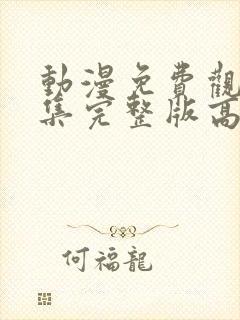 動漫免費觀
集完整版高
何福龍